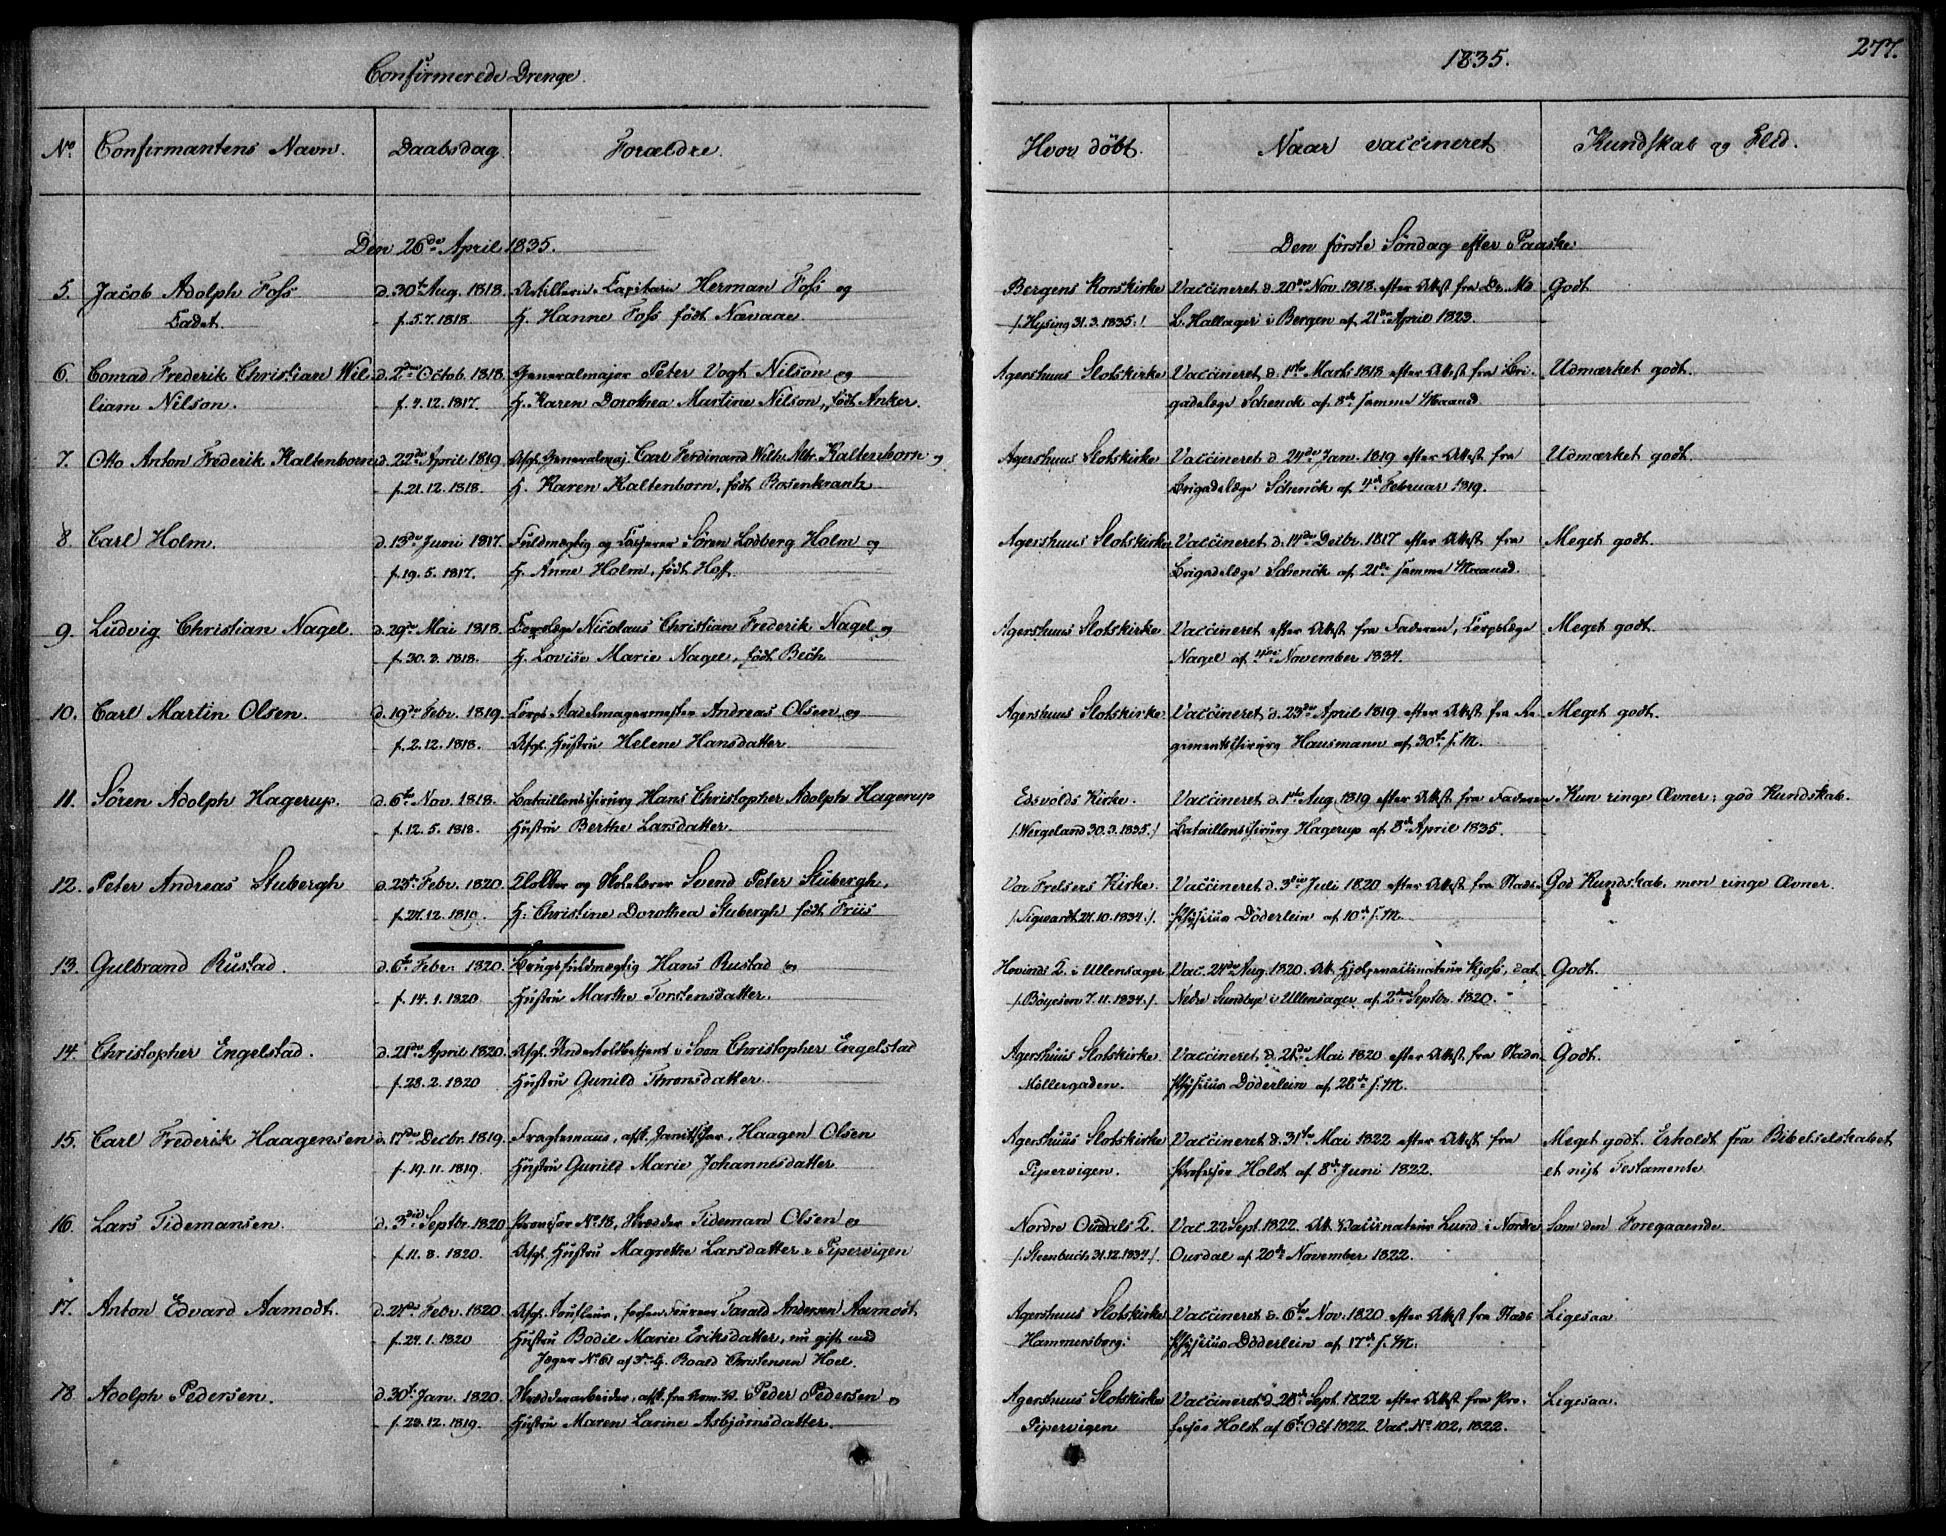 Confirmerede Drenge.
1835.
277.
No. Confirmantens Navn. Daabsdag. Forældre. Hvor döbt. Naar vaccineret Kundskab og Flid.
Den 26de April 1835. Den förste Søndag efter Paaske
5. Jacob Adolph Foss d. 30te Aug. 1818. Artillerie-Capitain Herman Foss og Bergens Korskirke Vaccineret d. 20de Nov. 1818. efter Attest fra Dr. Md Godt
Cadet. f. 5.7.1818 H. Hanne Foss födt Nævaae /: Hysing 31.3.1835 :/ L. Hallager i Bergen af 21de April 1823.
6. Conrad Frederik Christian Wil- d. 2den Octob. 1818. Generalmajor Peter Vogt Nilson og Agershuus Slotskirke Vaccineret d. 1ste Marts 1818 efter Attest fra Bri- Udmærket godt.
liam Nilson. f. 4.12.1817. H. Karen Dorothea Martine Nilson, födt Anker. gadelæge Schenck af 8de samme Maaned
7. Otto Anton Frederik Kaltenborn d. 22de April 1819. Afg. Generalmaj. Carl Ferdinand Wilh. Albr. Kaltenborn og Agershuus Slotskirke Vaccineret d. 24de Jan. 1819 efter Attest fra Udmærket godt.
f. 21.12.1818. H. Karen Kaltenborn, födt Rosenkrantz Brigadelæge Schenck af 4de Februar 1819.
8. Carl Holm. d. 13de Juni 1817. Fuldmægtig og Casserer Søren Lodberg Holm og Agershuus Slotskirke Vaccineret d. 14de Decbr. 1817 efter Attest fra Meget godt.
f. 19.5.1817. H. Anne Holm, födt Hoff Brigadelæge Schenck af 21de samme Maaned.
9. Ludvig Christian Nagel. d. 29de Mai 1818. Corpslæge Nicolaus Christian Frederik Nagel og Agershuus Slotskirke. Vaccineret efter Attest fra Faderen, Corpslæge Meget godt.
f. 30.3.1818. H. Lovise Marie Nagel, födt Bech Nagel af 4de November 1834.
10. Carl Martin Olsen. d. 19de Febr. 1819. Corps-Sadelmagermester Andreas Olsen og Agershuus Slotskirke. Vaccineret d. 23de April 1819 efter Attest fra Re- Meget godt.
f. 2.12.1818. Afg. Hustru Helene Hansdatter gimentschirurg Hausmann af 30te s. M.
11. Sören Adolph Hagerup. d. 6te Nov. 1818. Bataillonschirurg Hans Christopher Adolph Hagerup Edsvolds Kirke. Vaccineret d. 1ste Aug. 1819 efter Attest fra Faderen Kun ringe Ævner; god Kundskab.
f. 12.5.1818. Hustru Berthe Larsdatter. /: Wergeland 30.3.1835 :/ Bataillonschirurg Hagerup af 8de April 1835.
12. Peter Andreas Stubergh d. 23de Febr. 1820. Klokker og Skolelærer Svend Peter Stubergh, Vor Frelsers Kirke. Vaccineret d. 3die Juli 1820 efter Attest fra Stads- God Kundskab, men ringe Ævner.
f. 27.12.1819. H. Christine Dorothea Stubergh födt Friis /: Sigwardt 27.10.1834 :/. Physicus Döderlein af 10de s. M.
13. Gulbrand Rustad. d. 6te Febr. 1820. Brugsfuldmægtig Hans Rustad og Hovinds K. i Ullensager Vac. 24de Aug. 1820. Att. Hjelpevaccinateur Kjoss, dat. Godt.
f. 14.1.1820 Hustru Marthe Torstensdatter. /: Böyesen 7.11.1834 :/. Nedre Sundbye i Ullensager af 2den Septbr. 1820.
14. Christopher Engelstad. d. 21de April 1820. Afg. Undertoldbetjent i Soon Christopher Engelstad Agershuus Slotskirke Vaccineret d. 21de Mai 1820 efter Attest fra Stads- Godt.
f. 28.2.1820 Hustru Gunild Thronsdatter. Möllergaden. Physicus Döderlein af 28de s. M.
15. Carl Frederik Haagensen d. 17de Decbr. 1819. Fragtemand, afsk. Janitschar, Haagen Olsen Agershuus Slotskirke Vaccineret d. 31te Mai 1822 efter Attest fra Meget godt. Erholdt fra Bibelselskabet
f. 19.11.1819. Hustru Gunild Marie Johannesdatter Pipervigen. Professor Holst af 8de Juni 1822. et nyt Testamente
16. Lars Tidemansen. d. 3die Septbr. 1820 Provisor No. 18, Skrædder Tideman Olsen og Nordre Ourdals K. Vac. 22 Sept. 1822. Att. Vaccinateur Lund i Nordre Som den Foregaaende.
f. 11.8.1820. Afg. Hustru Magrethe Larsdatter i Pipervigen /: Steenbuch 31.12.1834 :/ Ourdal af 20de November 1822.
17. Anton Edvard Aamodt. d. 24de Febr. 1820. Afg. Tarald Andersen Aamodt, Agershuus Slotskirke Vaccineret d. 6te Nov. 1820 efter Attest fra Stads- Ligesaa
f. 24.1.1820 Hustru Bodil Marie Eriksdatter, nu gift med Hammersborg. Physicus Döderlein af 17de s. M.
Jæger No. 61 af 3de Roald Christensen Hoel.
18. Adolph Pedersen. d. 30te Jan. 1820. Skrædderarbeider, afsk. fra Peder Pedersen og Agershuus Slotskirke Vaccineret d. 28de Sept. 1822 efter Attest fra Pro- Ligesaa.
f. 28.12.1819. Hustru Maren Larine Asbjörnsdatter. Pipervigen fessor Holst af 6te Oct 1822. Vac. No. 102, 1822.